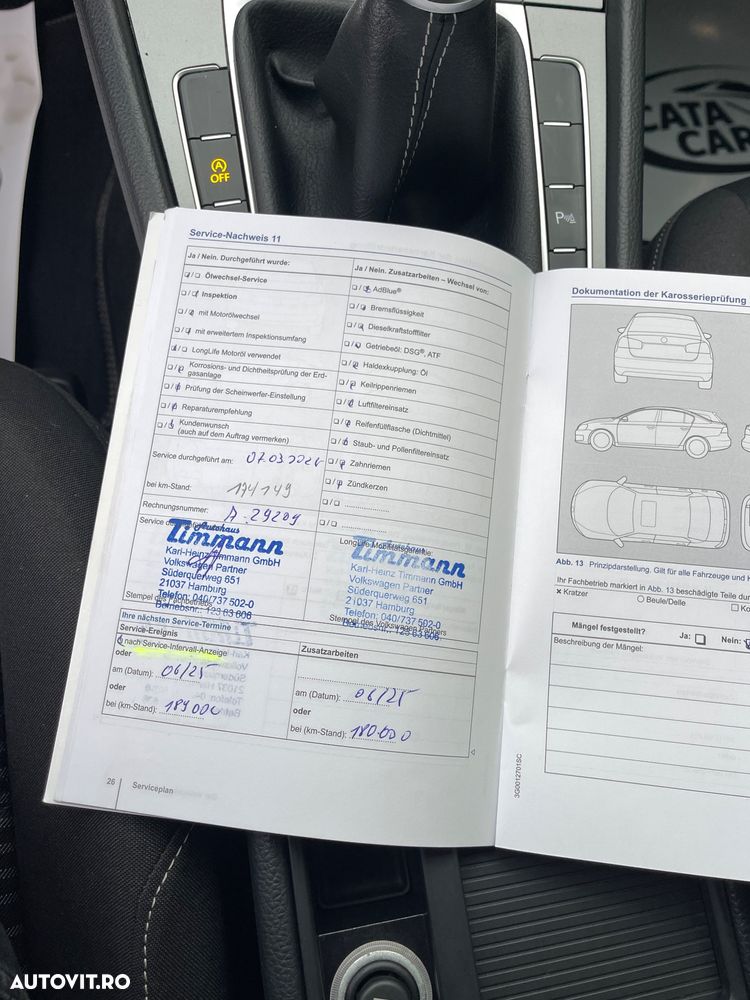 CATA
CAR
OFF
P
Service-Nachweis 11
Ja / Nein. Durchgeführt wurde:
Ölwechsel-Service
Inspektion
mit Motorölwechsel
mit erweitertem Inspektionsumfang
LongLife Motoröl verwendet
Korrosions- und Dichtheitsprüfung der Erd-
gasanlage
Prüfung der Scheinwerfer-Einstellung
Reparaturempfehlung
Kundenwunsch
(auch auf dem Auftrag vermerken)
Service durchgeführt am: 07.03.202
bei km-Stand: 174149
Rechnungsnummer: A.29209
Ja / Nein. Zusatzarbeiten – Wechsel von:
AdBlue®
Bremsflüssigkeit
Dieselkraftstofffilter
Getriebeöl: DSG®, ATF
Haldexkupplung: Öl
Keilrippenriemen
Luftfiltereinsatz
Reifenfüllflasche (Dichtmittel)
Staub- und Pollenfiltereinsatz
Zahnriemen
Zündkerzen
Autohaus
Timmann
Karl-Heinz Timmann GmbH
Volkswagen Partner
Süderquerweg 651
21037 Hamburg
Telefon: 040/737 502-0
Betriebsnr.: 123 63 606
Stempel des Fachbetriebs
LongLife Mobilitätsgarantie:
Timmann
Karl-Heinz Timmann GmbH
Volkswagen Partner
Süderquerweg 651
21037 Hamburg
Telefon: 040/737 502-0
Betriebsnr.: 123 63 606
Stempel des Volkswagen Partners
Ihre nächsten Service-Termine
Service-Ereignis
nach Service-Intervall-Anzeige
oder
am (Datum): 06/25
oder
bei (km-Stand):
Zusatzarbeiten
am (Datum): 06/25
oder
bei (km-Stand): 180.000
26 Serviceplan
Dokumentation der Karosserieprüfung
Abb. 13 Prinzipdarstellung. Gilt für alle Fahrzeuge und
Ihr Fachbetrieb markiert in Abb. 13 beschädigte Teile
× Kratzer
Beule/Delle
Mängel festgestellt? Ja: Nein:
Beschreibung der Mängel:
3G0012701SC
AUTOVIT.RO